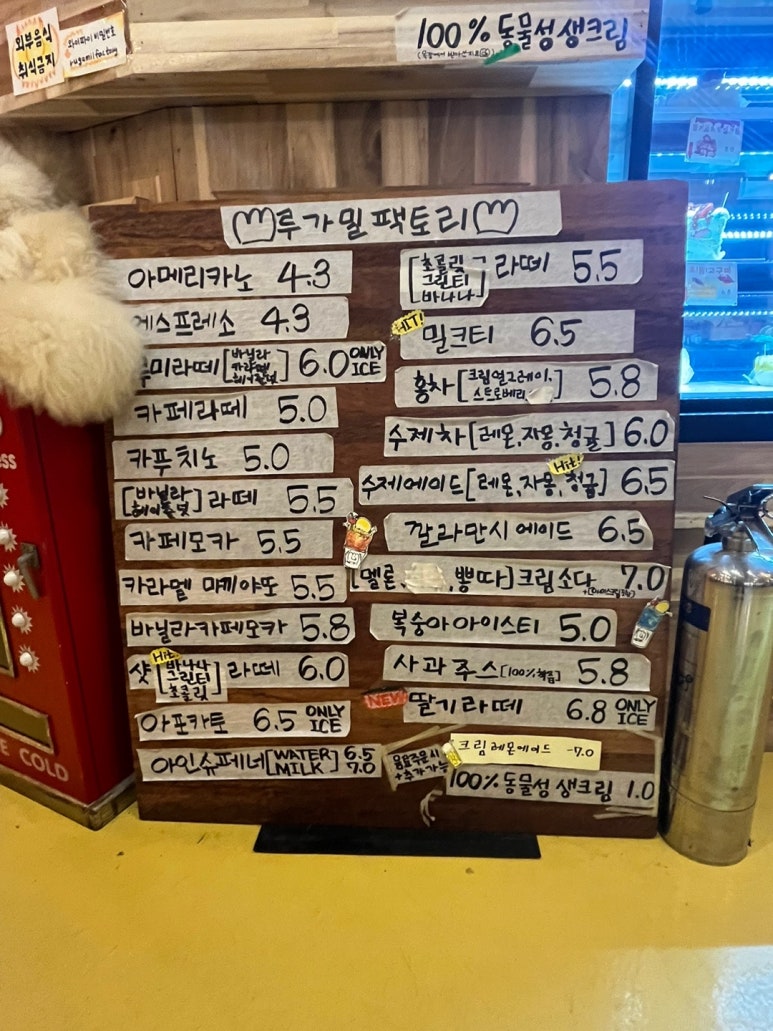 외부음식
취식금지
와이파이 비밀번호
rugamifactory
100% 동물성 생크림
루가밀 팩토리
아메리카노 4.3
에스프레소 4.3
미라떼 [바닐라 카라멜 헤이즐넛] 6.0 ONLY ICE
카페라떼 5.0
카푸치노 5.0
[바닐라 헤이즐넛] 라떼 5.5
카페모카 5.5
카라멜 마끼아또 5.5
바닐라카페모카 5.8
Hit!
샷 [바나나 그린티 초콜릿] 라떼 6.0
아포카토 6.5 ONLY ICE
아인슈페너 [WATER 6.5
MILK] 7.0
[초콜릿 그린티 바나나] 라떼 5.5
HIT!
밀크티 6.5
홍차 [크림얼그레이, 스트로베리] 5.8
수제차 [레몬, 자몽, 청귤] 6.0
Hit!
수제에이드 [레몬, 자몽, 청귤] 6.5
깔라만시 에이드 6.5
[멜론, , 뽕따] 크림소다 7.0
복숭아아이스티 5.0
사과주스 [100% 착즙] 5.8
NEW
딸기라떼 6.8 ONLY ICE
크림레몬에이드 -7.0
음료주문시
+추가가능
100% 동물성 생크림 1.0
COLD